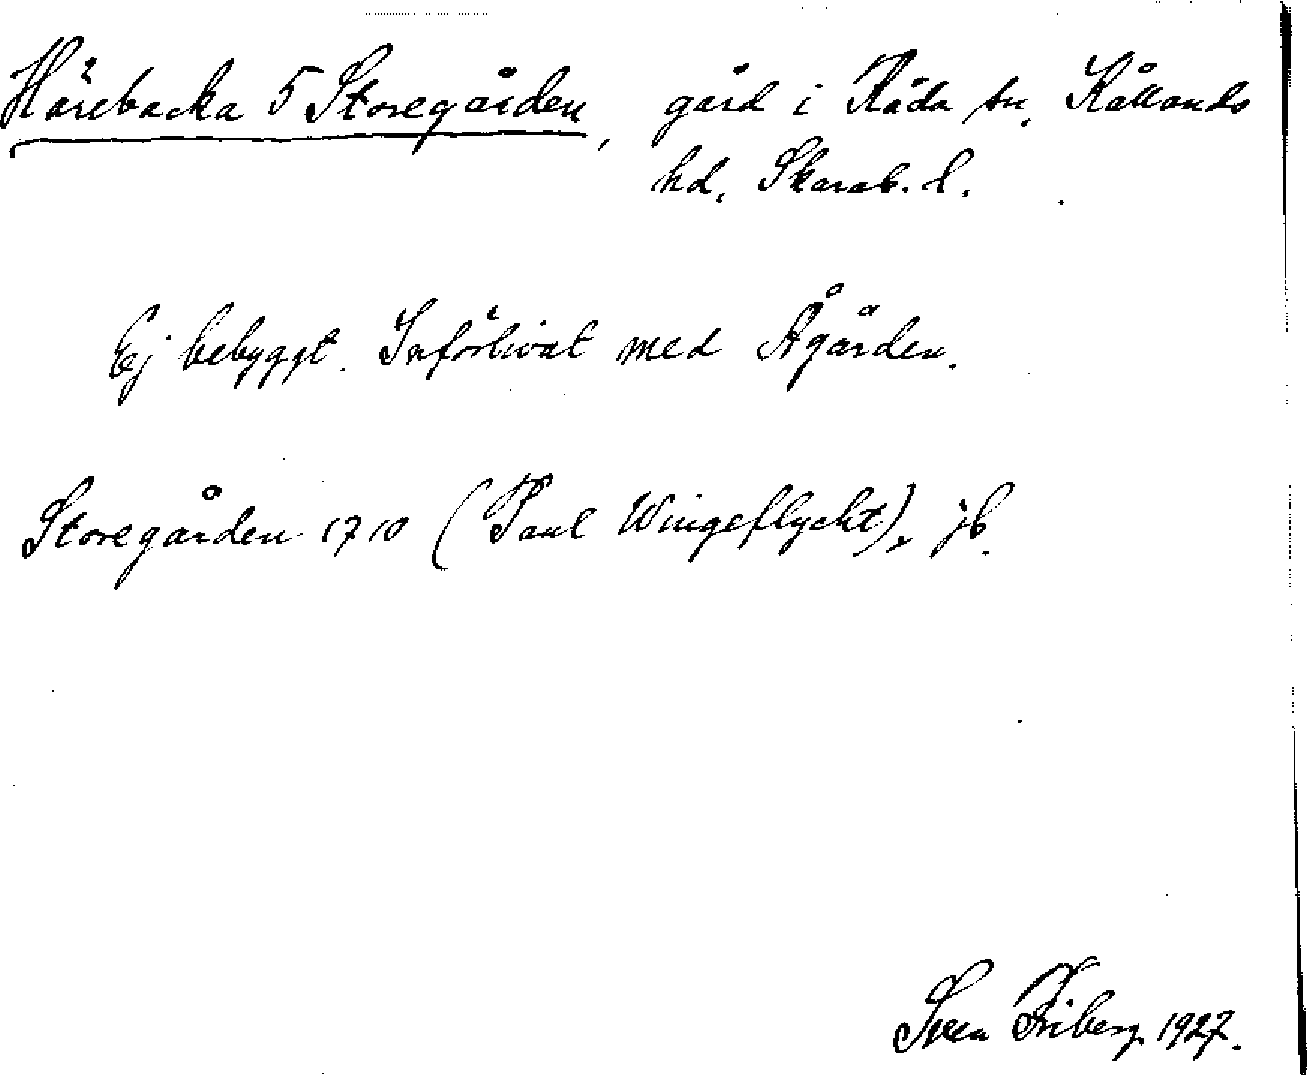 Härebacka 5 Storegården, gård i Råda sn, Kållands
hd, Skarab. l.
Ej bebyggt. Införlivat med Ågården.
Storegården 1710 (Paul Wingeflycht), jb.
Sven Friberg 1927.